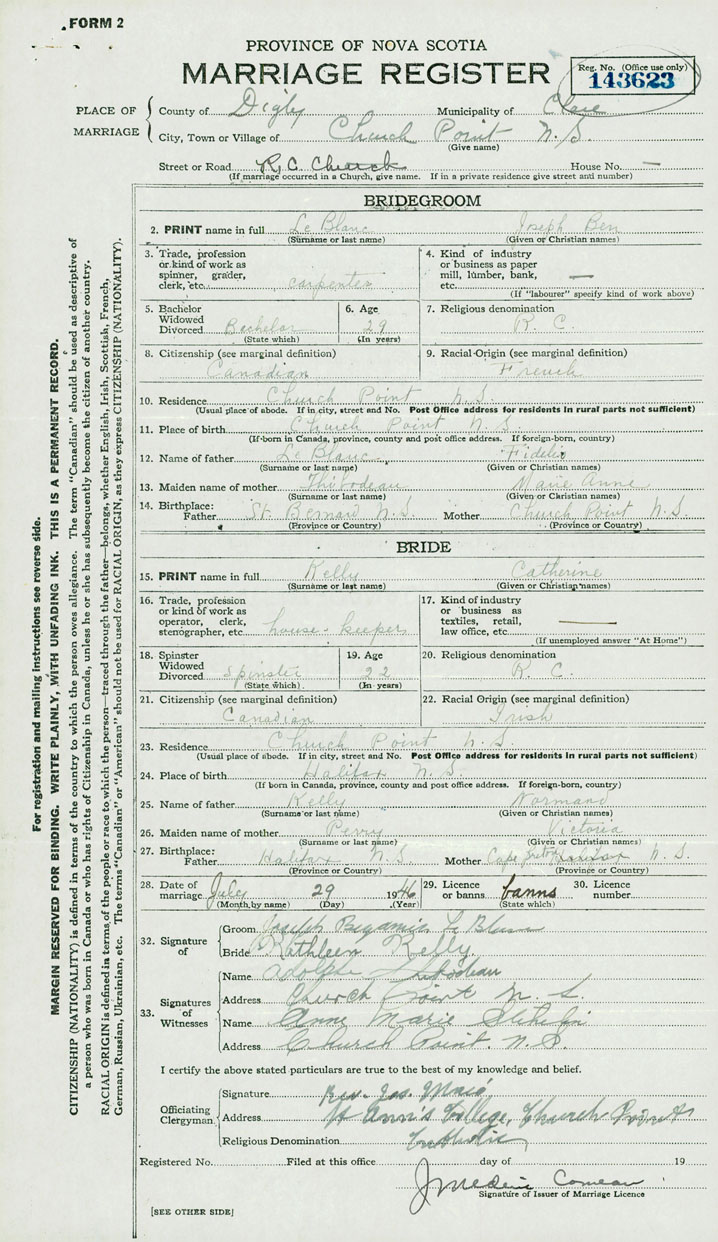 FORM 2
PROVINCE OF NOVA SCOTIA
MARRIAGE REGISTER
Reg. No. (Office use only)
143623
PLACE OF MARRIAGE
County of Digby Municipality of Clare
City, Town or Village of Church Point N. S.
(Give name)
Street or Road R. C. Church House No. —
(If marriage occurred in a Church, give name. If in a private residence give street and number)
BRIDEGROOM
2. PRINT name in full Le Blanc Joseph Ben
(Surname or last name) (Given or Christian names)
3. Trade, profession or kind of work as spinner, grader, clerk, etc. carpenter
4. Kind of industry or business as paper mill, lumber, bank, etc. —
(If "labourer" specify kind of work above)
5. Bachelor Widowed Divorced Bachelor
(State which)
6. Age 29
(In years)
7. Religious denomination R. C.
8. Citizenship (see marginal definition) Canadian
9. Racial-Origin (see marginal definition) French
10. Residence Church Point N. S.
(Usual place of abode. If in city, street and No. Post Office address for residents in rural parts not sufficient)
11. Place of birth Church Point N. S.
(If born in Canada, province, county and post office address. If foreign-born, country)
12. Name of father Le Blanc Fidele
(Surname or last name) (Given or Christian names)
13. Maiden name of mother Thibodeau Marie Anne
(Surname or last name) (Given or Christian names)
14. Birthplace: Father St. Bernard N. S. Mother Church Point N. S.
(Province or Country) (Province or Country)
BRIDE
15. PRINT name in full Kelly Catherine
(Surname or last name) (Given or Christian names)
16. Trade, profession or kind of work as operator, clerk, stenographer, etc house-keeper
17. Kind of industry or business as textiles, retail, law office, etc. —
(If unemployed answer "At Home")
18. Spinster Widowed Divorced Spinster
(State which)
19. Age 22
(In years)
20. Religious denomination R. C.
21. Citizenship (see marginal definition) Canadian
22. Racial Origin (see marginal definition) Irish
23. Residence Church Point N. S
(Usual place of abode. If in city, street and No. Post Office address for residents in rural parts not sufficient)
24. Place of birth Halifax N. S.
(If born in Canada, province, county and post office address. If foreign-born, country)
25. Name of father Kelly Normand
(Surname or last name) (Given or Christian names)
26. Maiden name of mother Perry Victoria
(Surname or last name) (Given or Christian names)
27. Birthplace: Father Halifax N. S. Mother Cape N. S.
(Province or Country) (Province or Country)
28. Date of marriage July 29 1946
(Month by name) (Day) (Year)
29. Licence or banns banns
(State which)
30. Licence number
32. Signature of
Groom Joseph Le Blanc
Bride Kathleen Kelly
33. Signatures of Witnesses
Name Adolphe Thibodeau
Address Church Point N. S.
Name Anne Marie
Address Church Point. N. S.
I certify the above stated particulars are true to the best of my knowledge and belief.
Officiating Clergyman
Signature Rev. Jos.
Address St Ann's College, Church Point
Religious Denomination Catholic
Registered No. Filed at this office day of 19
Comeau
Signature of Issuer of Marriage Licence
[SEE OTHER SIDE]
For registration and mailing instructions see reverse side.
MARGIN RESERVED FOR BINDING. WRITE PLAINLY, WITH UNFADING INK. THIS IS A PERMANENT RECORD.
CITIZENSHIP (NATIONALITY) is defined in terms of the country to which the person owes allegiance. The term "Canadian" should be used as descriptive of
a person who was born in Canada or who has rights of Citizenship in Canada, unless he or she has subsequently become the citizen of another country.
RACIAL ORIGIN is defined in terms of the people or race to which the person—traced through the father—belongs, whether English, Irish, Scottish, French,
German, Russian, Ukrainian, etc. The terms "Canadian" or "American" should not be used for RACIAL ORIGIN, as they express CITIZENSHIP (NATIONALITY).